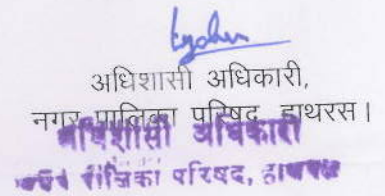 अधिशासी अधिकारी,
नगर पालिका परिषद हाथरस।
अधिशासी अधिकारी
परिषद, हाथरस